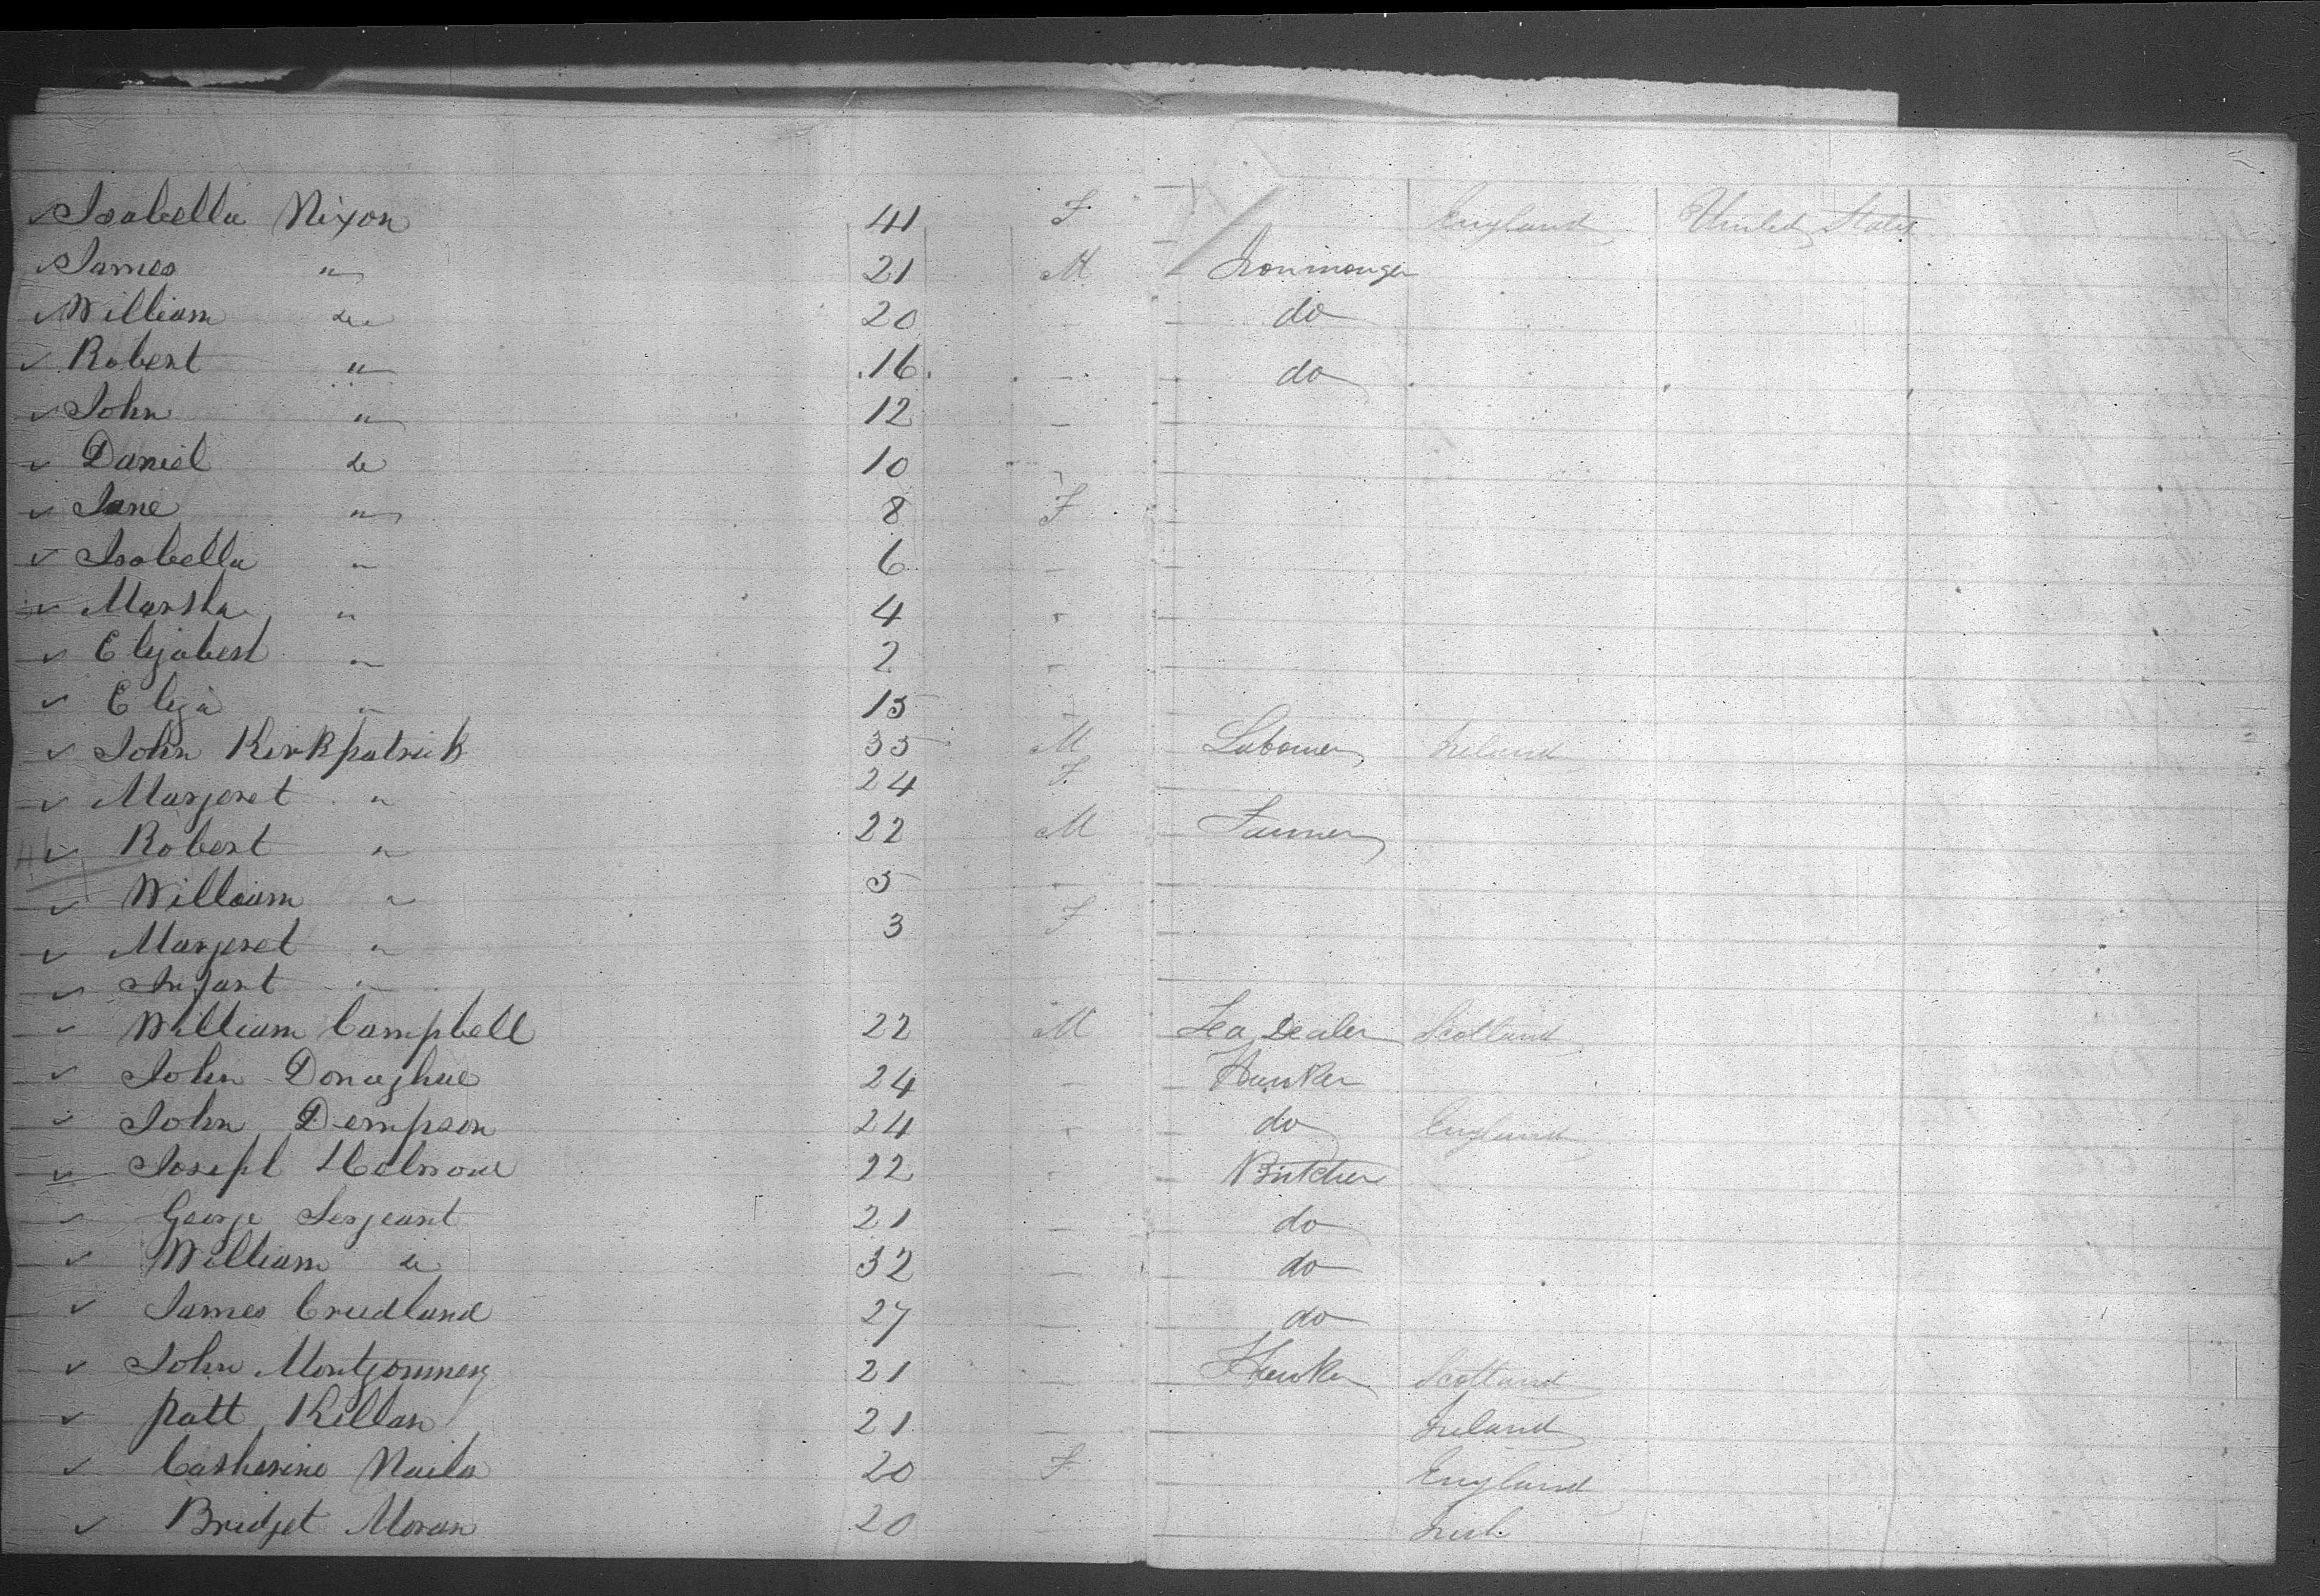 Isabella Nixon 41 F England United States
James " 21 M Ironmonger
William do 20 - do
Robert " 16 - do
John " 12 -
Daniel do 10 "
Jane " 8 F
Isabella " 6 -
Martha " 4 "
Elizabeth " 2 "
Eliza " 15 "
John Kirkpatrick 35 M Labourer Ireland
Margeret " 24 F
Robert " 22 M Farmer
William " 5 -
Margeret " 3 F
Infant "
William Campbell 22 M Tea Dealer Scotland
John Donaghue 24 - Hawker
John Dempson 24 " do England
Joseph 22 " Butcher
George Sergeant 21 - do
William do 32 - do
James Crudland 27 - do
John Montgommery 21 - Hawker Scotland
Patt Killan 21 - Ireland
Catherine 20 F England
Bridget Moran 20 - Irel